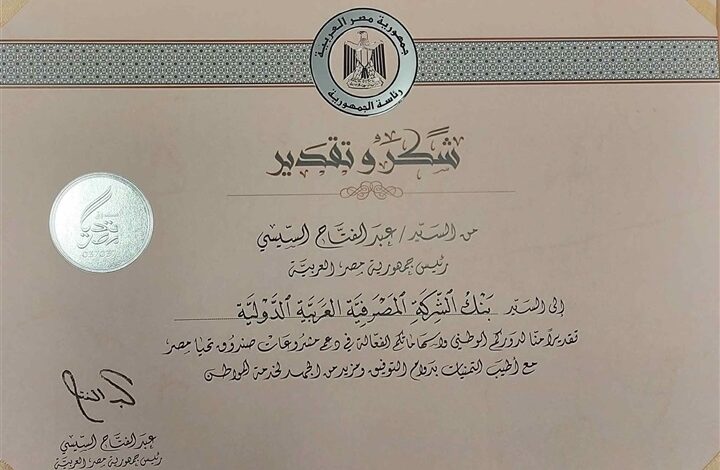 جمهورية مصر العربية
رئاسة الجمهورية
شكر وتقدير
من السيد / عبد الفتاح السيسي
رئيس جمهورية مصر العربية
إلى السيد بنك الشركة المصرفية العربية الدولية
تقديرا منا لدوركم الوطني وإسهاماتكم الفعالة في دعم مشروعات صندوق تحيا مصر
مع أطيب التمنيات بدوام التوفيق ومزيد من الجهد لخدمة المواطن
عبد الفتاح السيسي
رئيس جمهورية مصر العربية